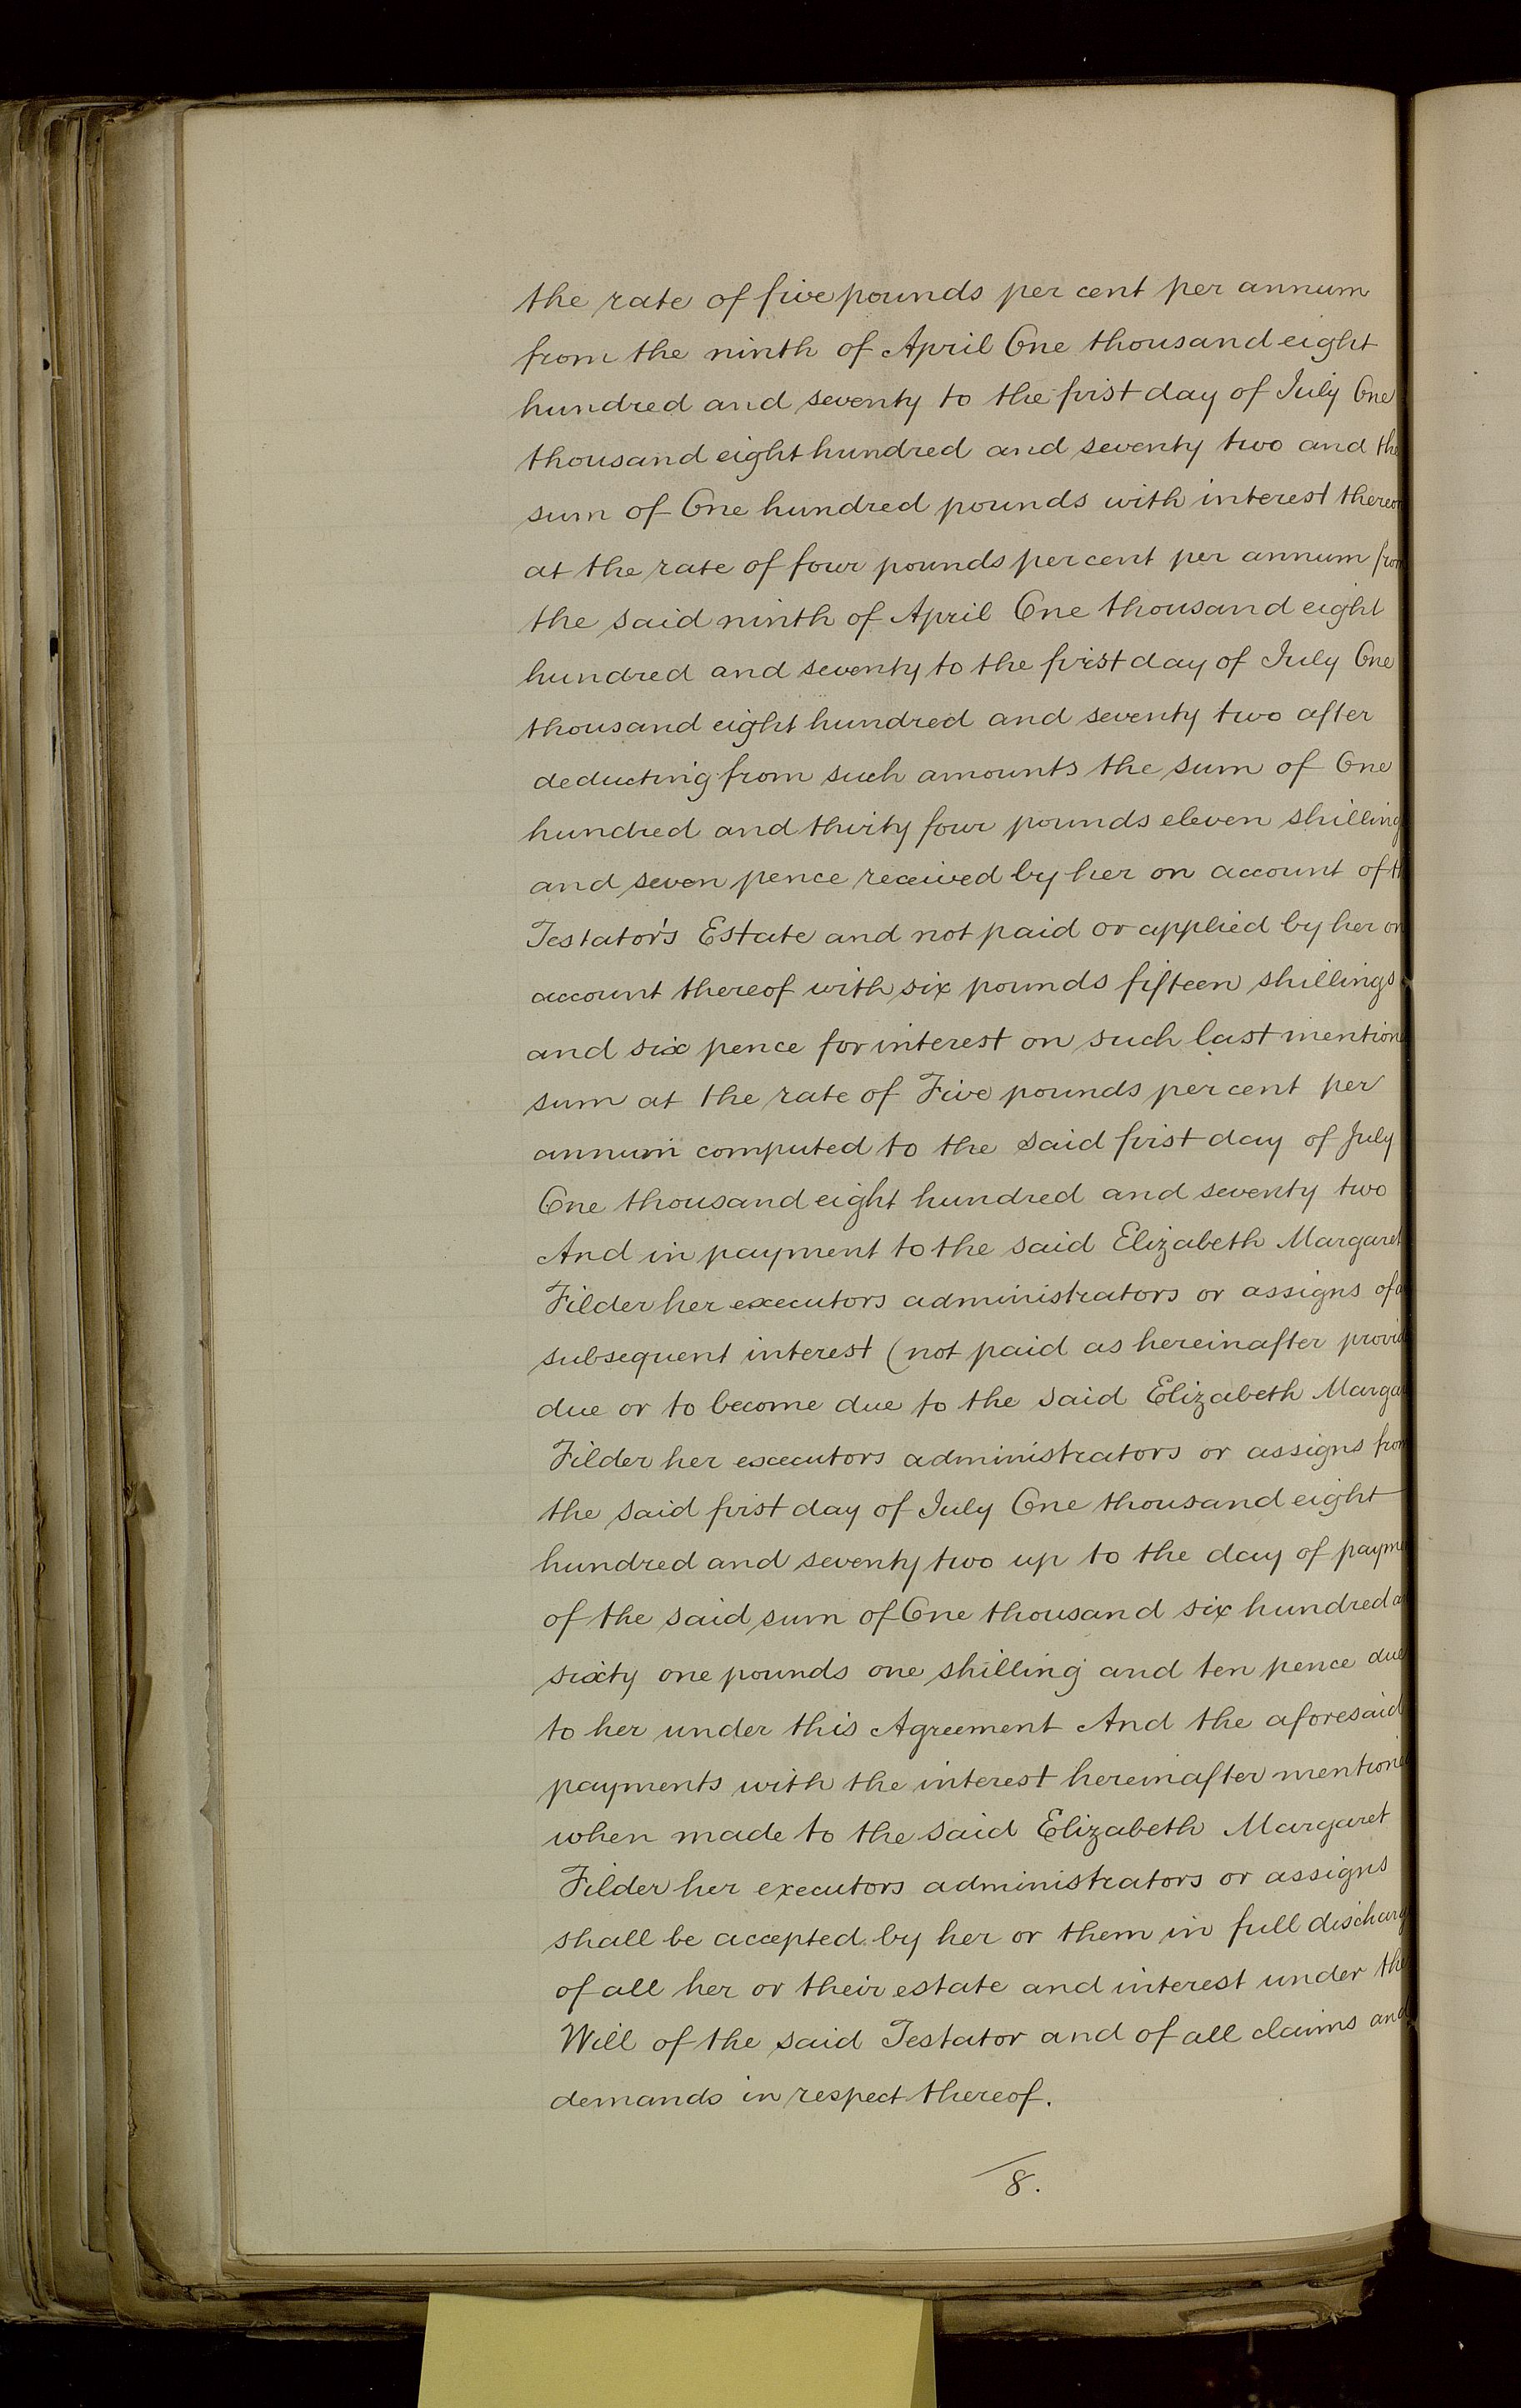 the rate of five pounds per cent per annum
from the ninth of April One thousand eight
hundred and seventy to the first day of July One
thousand eight hundred and seventy two and the
sum of One hundred pounds with interest thereon
at the rate of four pounds per cent per annum from
the said ninth of April One thousand eight
hundred and seventy to the first day of July One
thousand eight hundred and seventy two after
deducting from such amounts the sum of One
hundred and thirty four pounds eleven shilling
and seven pence received by her on account of th
Testator's Estate and not paid or applied by her on
account thereof with six pounds fifteen shillings
and six pence for interest on such last mention
sum at the rate of Five pounds per cent per
annum computed to the said first day of July
One thousand eight hundred and seventy two
And in payment to the said Elizabeth Margaret
Filder her executors administrators or assigns of
subsequent interest (not paid as hereinafter provid
due or to become due to the said Elizabeth Margar
Filder her executors administrators or assigns from
the said first day of July One thousand eight
hundred and seventy two up to the day of payme
of the said sum of One thousand six hundred a
sixty one pounds one shilling and ten pence due
to her under this Agreement And the aforesaid
payments with the interest hereinafter mentione
when made to the said Elizabeth Margaret
Filder her executors administrators or assigns
shall be accepted by her or them in full discharg
of all her or their estate and interest under the
Will of the said Testator and of all claims and
demands in respect thereof.
8.